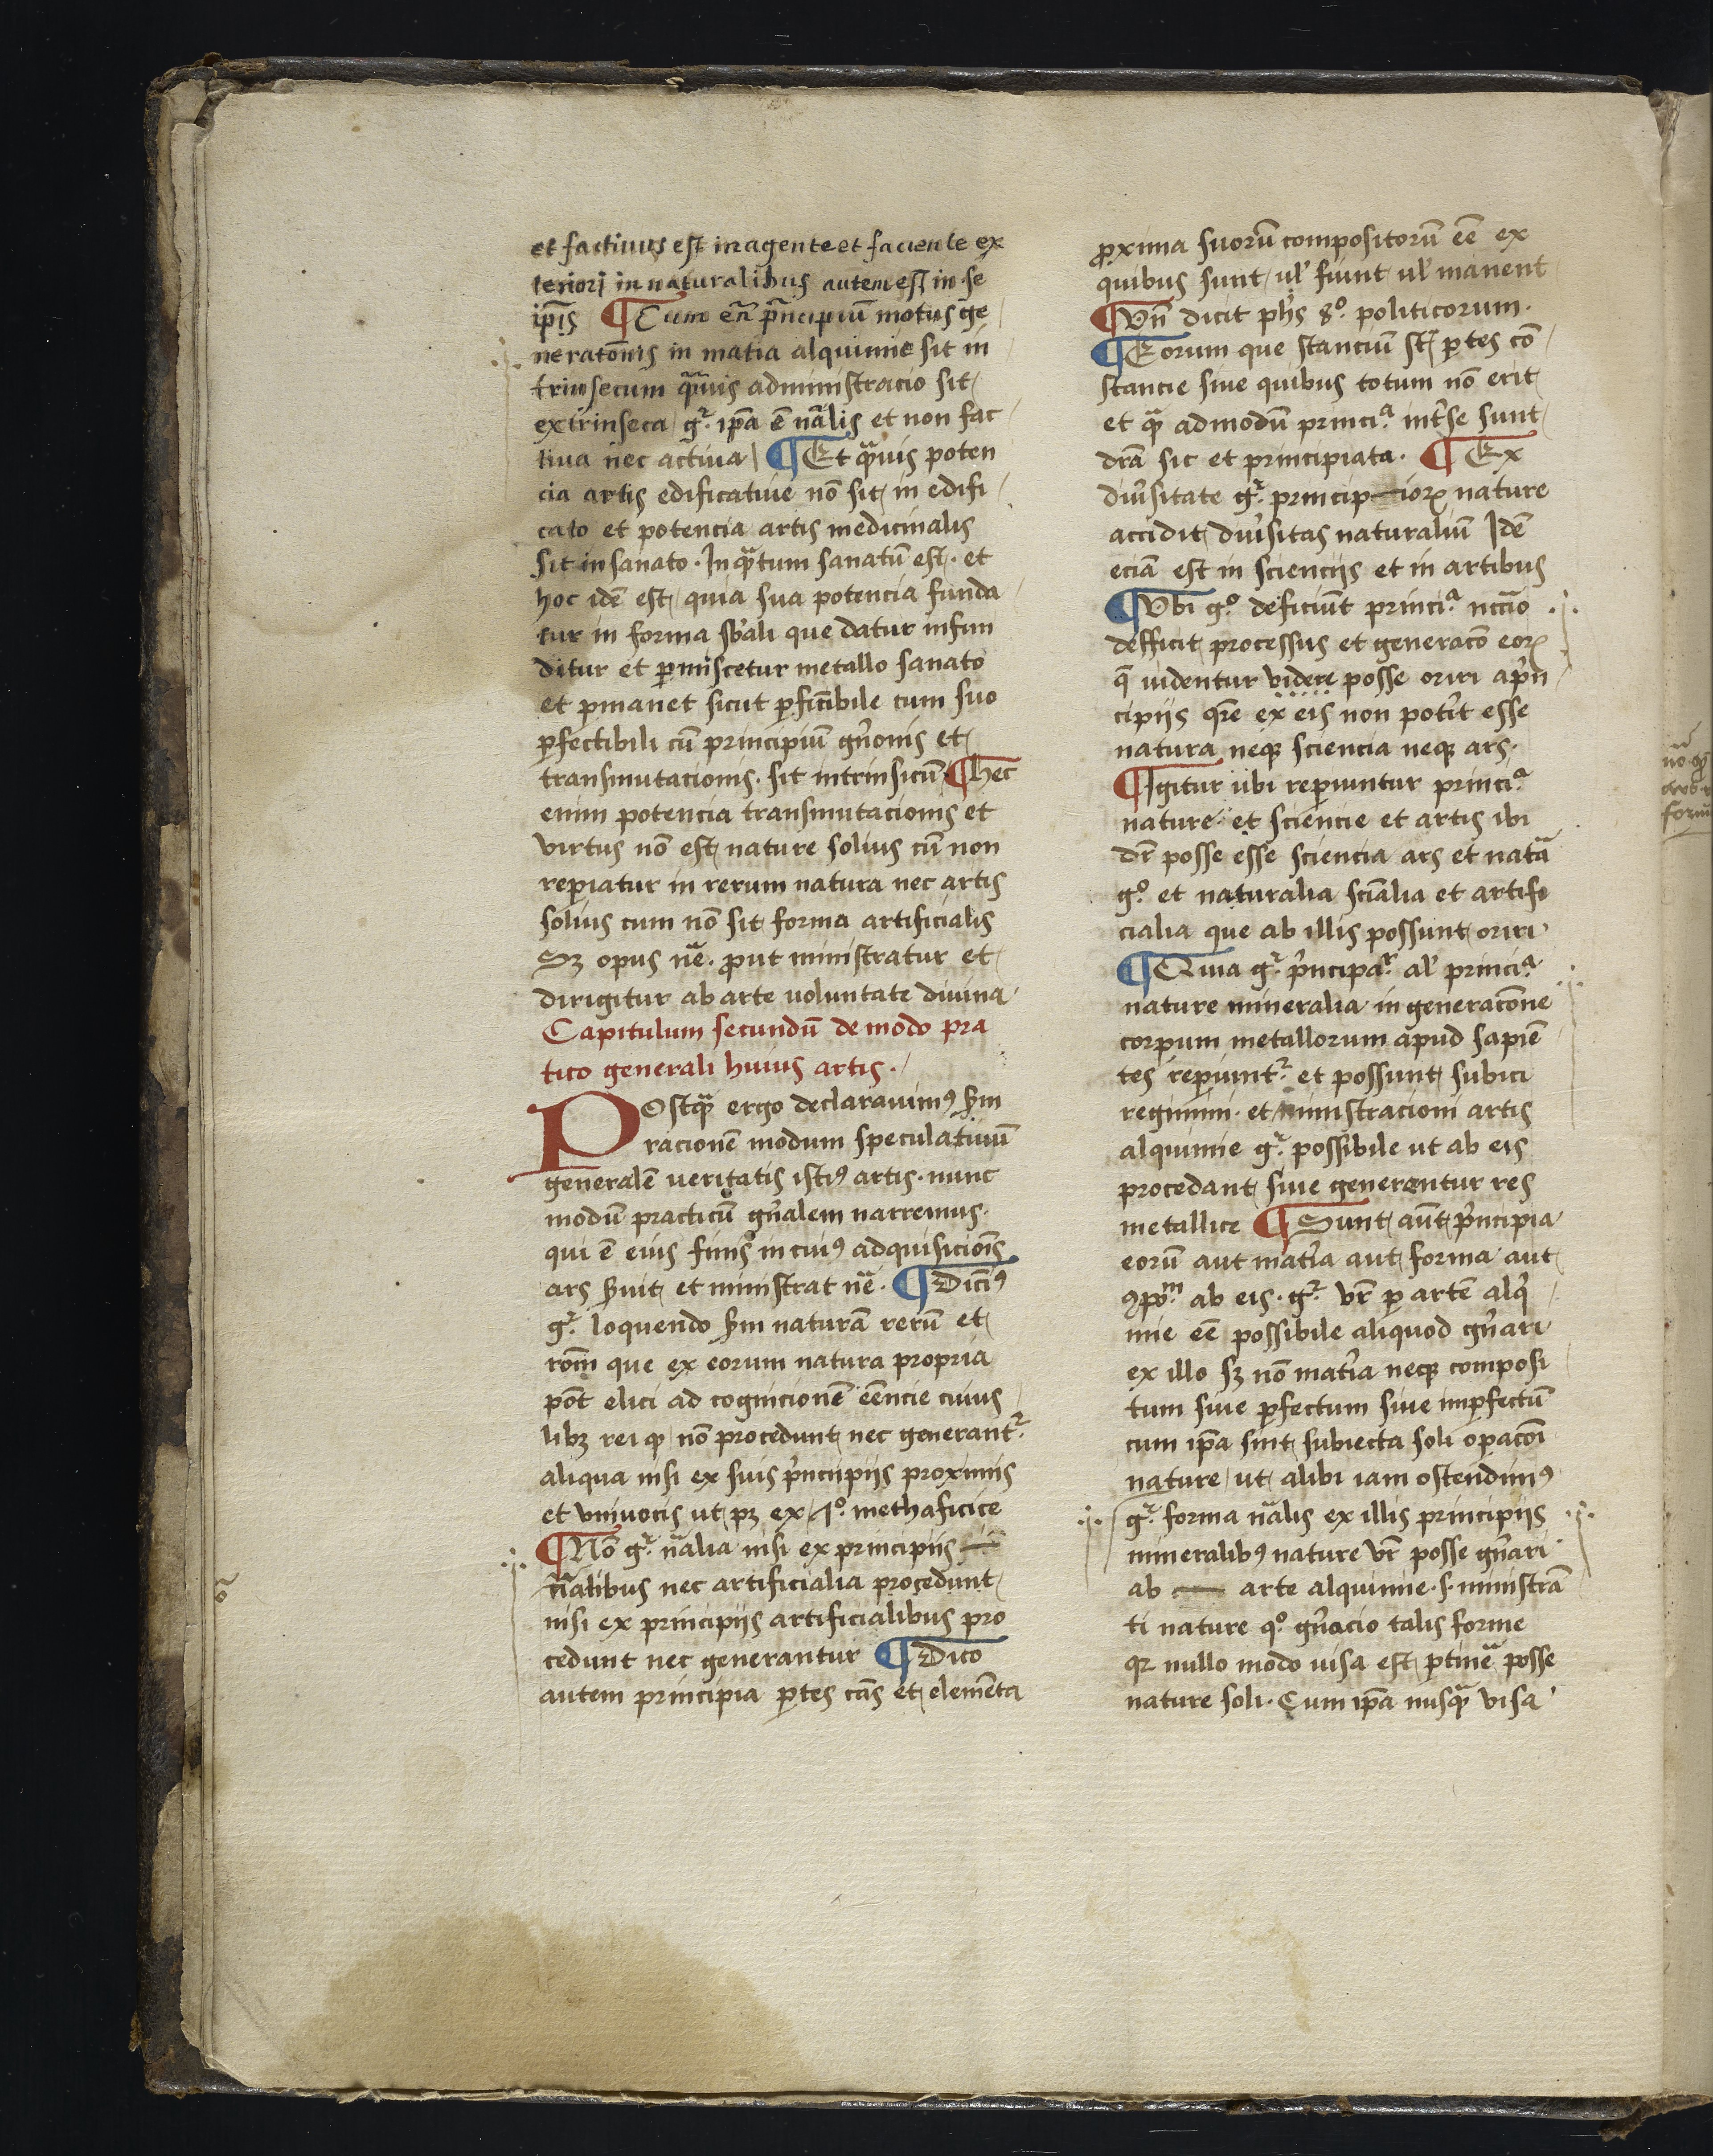 et factiuus est in agente et faciente ex
teriori in naturalibus autem est in se
ip̄is ¶ Cum em̄ p̄ncipiū motus ge
neratōnis in matīa alquimie sit in
trinsecum q̄uis administracio sit
extrinseca gͬ ip̄a ē nālis et non fac
tiua nec actiua ¶ Et q̄uis poten
cia artis edificatiue nō sit in edifi
cato et potencia artis medicinalis
sit in sanato. In q̄tum sanatū est. et
hoc idē est quia sua potencia funda
tur in forma sb̄ali que datur infun
ditur et ꝑmiscetur metallo sanato
et ꝑmanet sicut ꝑfic̄ibile cum suo
ꝑfectibili cū principiū gn̄onis et
transmutacionis. sit intrinsicū ¶ hec
enim potencia transmutacionis et
virtus nō est nature solius cū non
reꝑiatur in rerum natura nec artis
solius cum nō sit forma artificialis
Sꝫ opus nē. ꝓut ministratur et
dirigitur ab arte uoluntate diuina
Capitulum secundū de modo pra
tico generali huius artis.
POstq̄ ergo declarauimꝰ sm̄
racionē modum speculatiuū
generalē ueritatis istiꝰ artis. nunc
modū practicū gn̄alem narremus.
qui ē eius finis in cuiꝰ adquisicioīs
ars s̄uit et ministrat nē. ¶ Dicīꝰ
gͬ loquendo sm̄ naturā rerū et
rōm̄ que ex eorum natura propria
pōt elici ad cognicionē eēncie cuius
libꝫ rei ꝙ nō procedunt nec generantͬ
aliqua nisi ex suis p̄ncipijs proximis
et vniuocis ut pꝫ ex 10 methaficice
¶ Nō gͬ nālia nisi ex principijs
nālibus nec artificialia procedunt
nisi ex principijs artificialibus pro
cedunt nec generantur ¶ Dico
autem principia ꝑtes cās et elemēta
ꝓxima suorū compositorū eē ex
quibus sunt ul̄ fiunt ul̄ manent
¶ Vn̄ dicit ph̄s 8º politicorum.
¶ Eorum que stanciū st̄ ꝑtes cō
stancie siue quibus totum nō erit
et q̄ admodū princiᵃ int̄se sunt
drā sic et principiata. ¶ Ex
diūsitate gͬ principioꝝ nature
accidit diūsitas naturaliū Idē
eciā est in sciencijs et in artibus
¶ Vbi gº deficiūt princiᵃ nc̄cio
defficit processus et generacō eoꝝ
q̄ uidentur videre posse oriri ap̄n
cipijs qr̄e ex eis non pot̄it esse
natura neqꝫ sciencia neqꝫ ars.
¶ Igitur ubi reꝑiuntur princiᵃ
nature et sciencie et artis ibi
dr̄ posse esse sciencia ars et natā
gº et naturalia sciālia et artifi
cialia que ab illis possunt oriri
¶ Quia gͬ p̄ncipaͬ al̄ princiᵃ
nature mineralia in generacōne
corpum metallorum apud sapiē
tes reꝑiuntͬ et possunt subici
regimini et ministracioni artis
alquimie gͬ possibile ut ab eis
procedant siue generentur res
metallice ¶ Sunt aūt p̄ncipia
eorū aut mat̄ia aut forma aut
ꝯpōᵐ ab eis. gͬ vr̄ ꝑ artē alq̄
mie eē possibile aliquod gn̄ari
ex illo sꝫ nō mat̄ia neqꝫ composi
tum siue ꝑfectum siue imꝑfectū
cum ip̄a sint subiecta soli opacōī
nature ut alibi iam ostendimꝰ
gͬ forma nālis ex illis principijs
mineralibꝰ nature vr̄ posse gn̄ari
ab arte alquimie .s. ministrā
ti nature qº gn̄acio talis forme
qꝛ nullo modo uisa est ꝑtinē posse
nature soli. Cum ip̄a nusq̄ visa